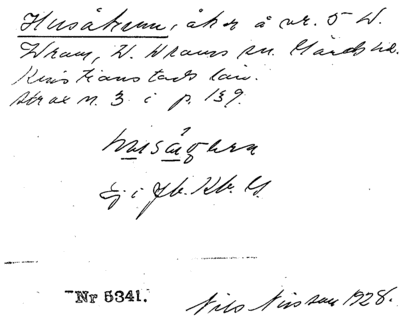 Husåkern, åker å nr. 5 W.
Wram, W. Wrams sn. Gärds hd.
Kristianstads län.
strax n. 3 i p. 139.
husågern
Ej i Jb. Kb. G.
Nr 5341.
Nils Nilsson 1928.